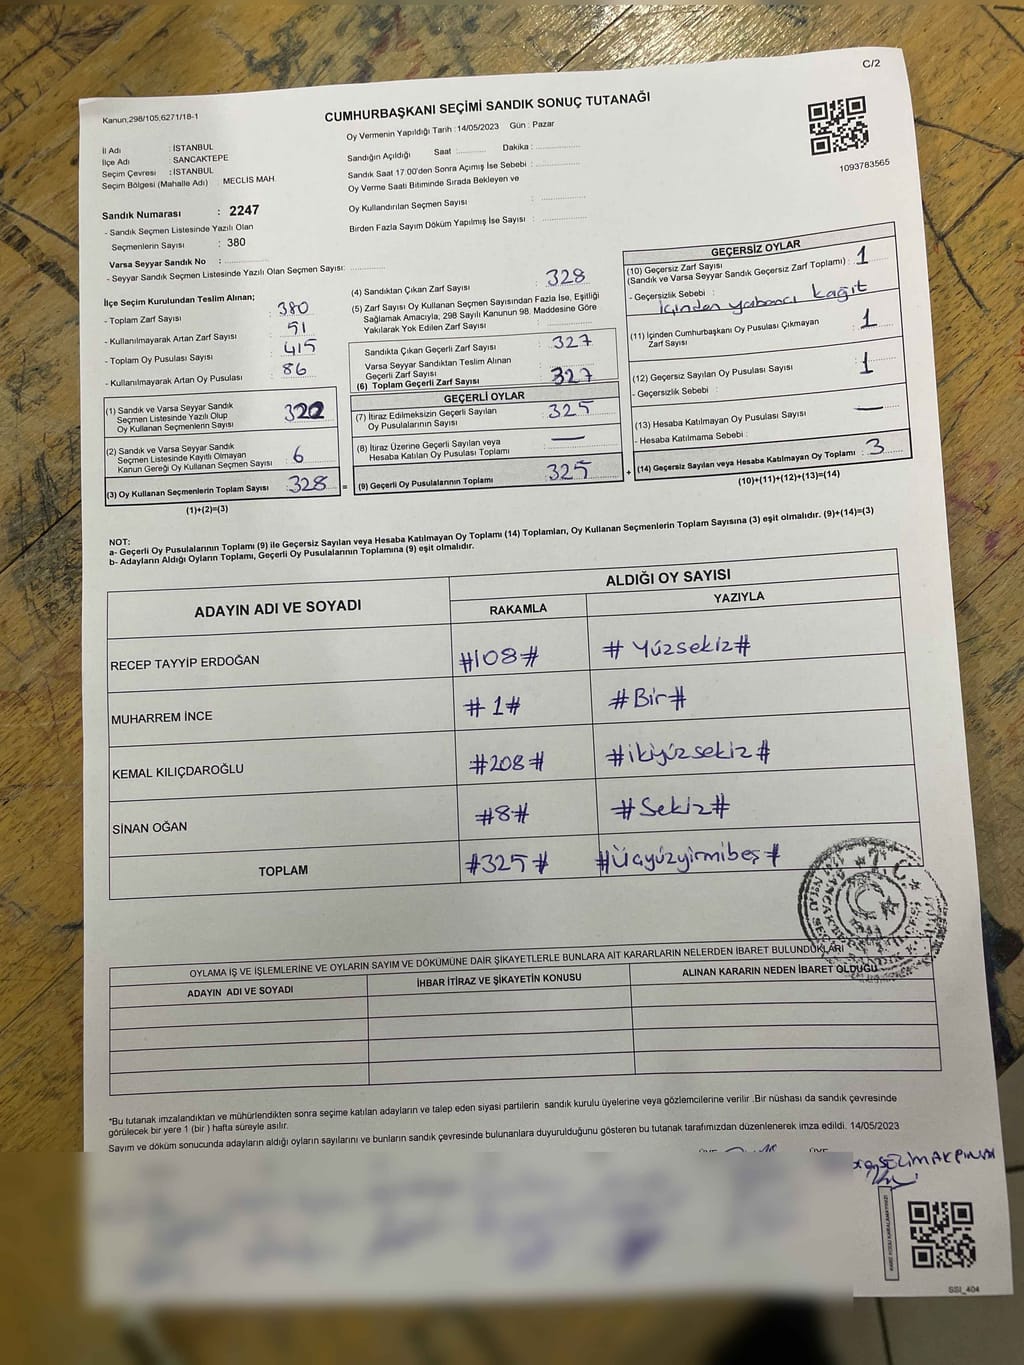 C/2
Kanun;298/105,6271/18-1
CUMHURBAŞKANI SEÇİMİ SANDIK SONUÇ TUTANAĞI
Oy Vermenin Yapıldığı Tarih :14/05/2023 Gün : Pazar
1093783565
İl Adı : İSTANBUL
İlçe Adı SANCAKTEPE
Seçim Çevresi : İSTANBUL
Seçim Bölgesi (Mahalle Adı) : MECLİS MAH.
Sandık Numarası : 2247
- Sandık Seçmen Listesinde Yazılı Olan
Seçmenlerin Sayısı : 380
Varsa Seyyar Sandık No :
- Seyyar Sandık Seçmen Listesinde Yazılı Olan Seçmen Sayısı:
Sandığın Açıldığı Saat : Dakika :
Sandık Saat 17:00'den Sonra Açımış İse Sebebi :
Oy Verme Saati Bitiminde Sırada Bekleyen ve
Oy Kullandırılan Seçmen Sayısı :
Birden Fazla Sayım Döküm Yapılmış İse Sayısı :
İlçe Seçim Kurulundan Teslim Alınan;
- Toplam Zarf Sayısı : 380
- Kullanılmayarak Artan Zarf Sayısı : 51
- Toplam Oy Pusulası Sayısı : 415
- Kullanılmayarak Artan Oy Pusulası : 86
(1) Sandık ve Varsa Seyyar Sandık
Seçmen Listesinde Yazılı Olup
Oy Kullanan Seçmenlerin Sayısı : 322
(2) Sandık ve Varsa Seyyar Sandık
Seçmen Listesinde Kayıtlı Olmayan
Kanun Gereği Oy Kullanan Seçmen Sayısı : 6
(3) Oy Kullanan Seçmenlerin Toplam Sayısı : 328 =
(1)+(2)=(3)
(4) Sandıktan Çıkan Zarf Sayısı : 328
(5) Zarf Sayısı Oy Kullanan Seçmen Sayısından Fazla İse, Eşitliği
Sağlamak Amacıyla, 298 Sayılı Kanunun 98. Maddesine Göre
Yakılarak Yok Edilen Zarf Sayısı :
Sandıkta Çıkan Geçerli Zarf Sayısı : 327
Varsa Seyyar Sandıktan Teslim Alınan
Geçerli Zarf Sayısı
(6) Toplam Geçerli Zarf Sayısı : 327
GEÇERLİ OYLAR
(7) İtiraz Edilmeksizin Geçerli Sayılan
Oy Pusulalarının Sayısı : 325
(8) İtiraz Üzerine Geçerli Sayılan veya
Hesaba Katılan Oy Pusulası Toplamı : —
(9) Geçerli Oy Pusulalarının Toplamı : 325 +
GEÇERSİZ OYLAR
(10) Geçersiz Zarf Sayısı
(Sandık ve Varsa Seyyar Sandık Geçersiz Zarf Toplamı) : 1
- Geçersizlik Sebebi : İçinden yabancı kağıt
(11) İçinden Cumhurbaşkanı Oy Pusulası Çıkmayan
Zarf Sayısı : 1
(12) Geçersiz Sayılan Oy Pusulası Sayısı : 1
- Geçersizlik Sebebi :
(13) Hesaba Katılmayan Oy Pusulası Sayısı : —
- Hesaba Katılmama Sebebi :
(14) Geçersiz Sayılan veya Hesaba Katılmayan Oy Toplamı : 3
(10)+(11)+(12)+(13)=(14)
NOT:
a- Geçerli Oy Pusulalarının Toplamı (9) ile Geçersiz Sayılan veya Hesaba Katılmayan Oy Toplamı (14) Toplamları, Oy Kullanan Seçmenlerin Toplam Sayısına (3) eşit olmalıdır. (9)+(14)=(3)
b- Adayların Aldığı Oyların Toplamı, Geçerli Oy Pusulalarının Toplamına (9) eşit olmalıdır.
ADAYIN ADI VE SOYADI ALDIĞI OY SAYISI
RAKAMLA YAZIYLA
RECEP TAYYİP ERDOĞAN #108# # Yüzsekiz#
MUHARREM İNCE # 1# #Bir#
KEMAL KILIÇDAROĞLU #208# #ikiyüzsekiz#
SİNAN OĞAN #8# #Sekiz#
TOPLAM #325# #Üçyüzyirmibeş#
OYLAMA İŞ VE İŞLEMLERİNE VE OYLARIN SAYIM VE DÖKÜMÜNE DAİR ŞİKAYETLERLE BUNLARA AİT KARARLARIN NELERDEN İBARET BULUNDUKLARI
ADAYIN ADI VE SOYADI İHBAR İTİRAZ VE ŞİKAYETİN KONUSU ALINAN KARARIN NEDEN İBARET OLDUĞU
*Bu tutanak imzalandıktan ve mühürlendikten sonra seçime katılan adayların ve talep eden siyasi partilerin sandık kurulu üyelerine veya gözlemcilerine verilir .Bir nüshası da sandık çevresinde
görülecek bir yere 1 (bir ) hafta süreyle asılır.
Sayım ve döküm sonucunda adayların aldığı oyların sayılarını ve bunların sandık çevresinde bulunanlara duyurulduğunu gösteren bu tutanak tarafımızdan düzenlenerek imza edildi. 14/05/2023
SELİM AKPINAR
SSI_404